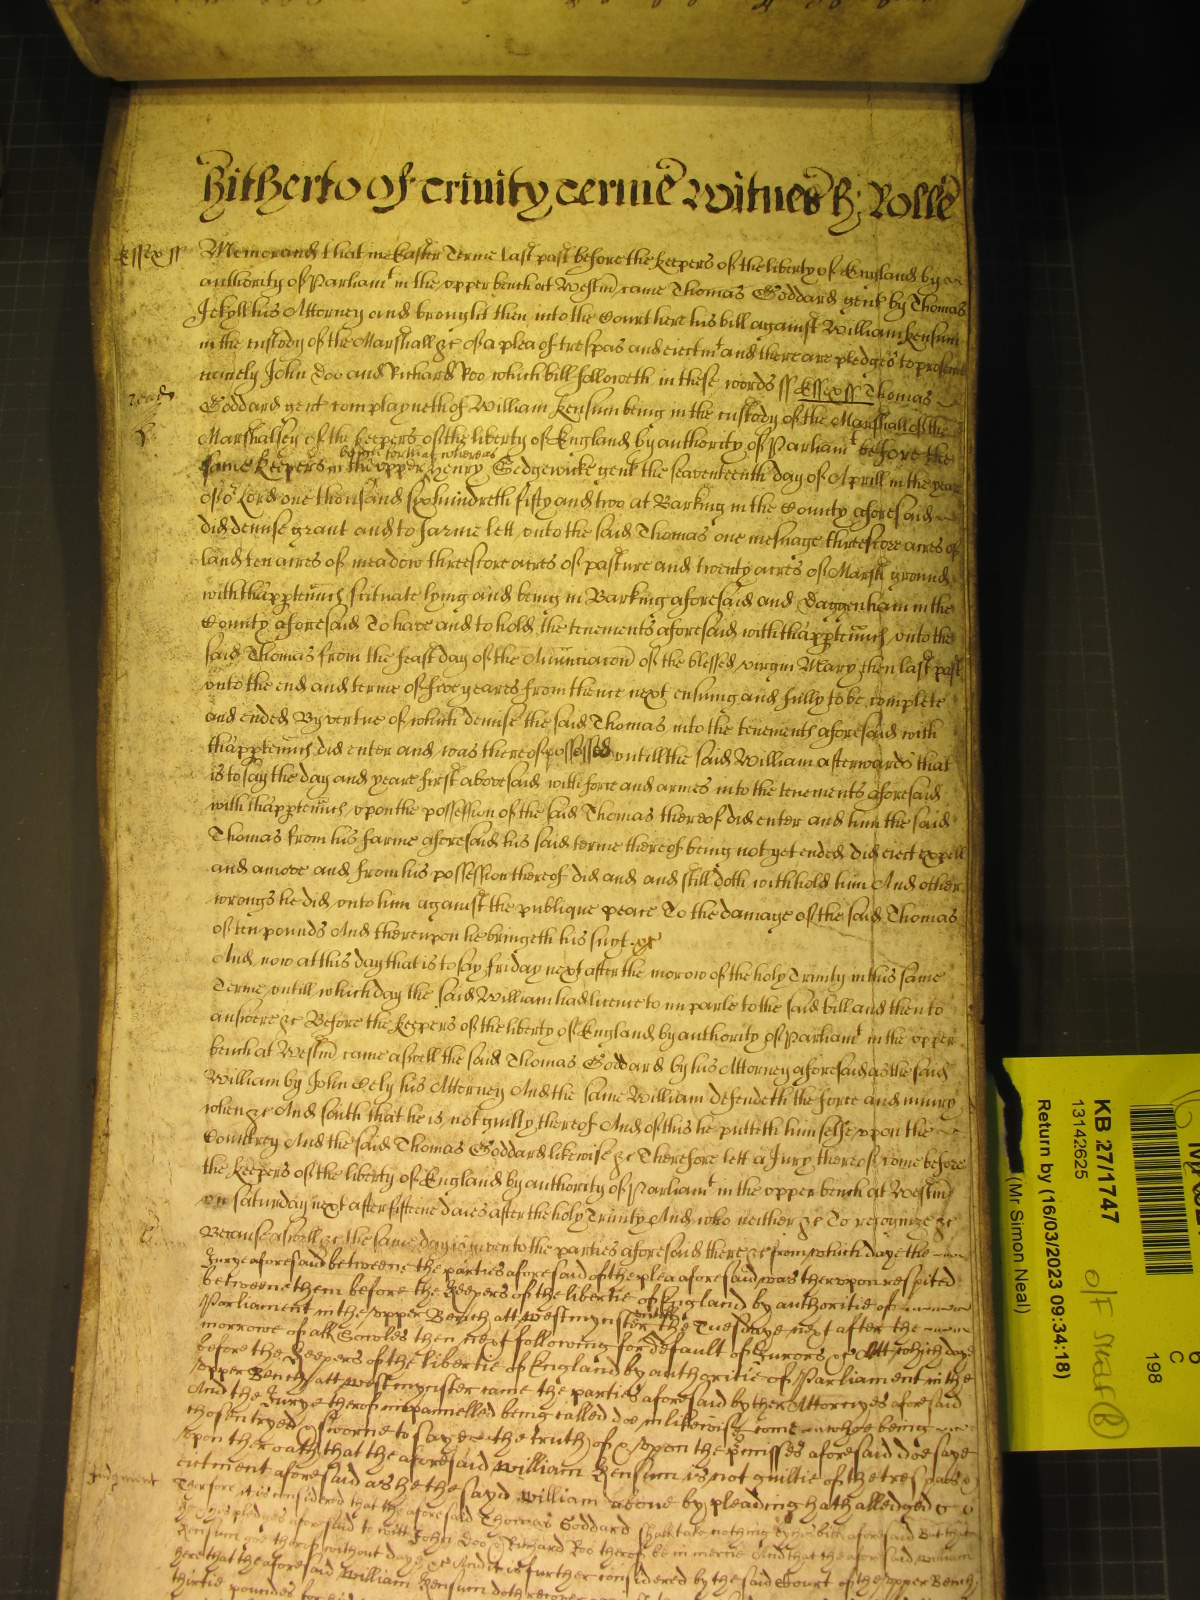 Hitherto of Trinity Terme Witnes H: Rolle
Essex ss Memorand that in Easter Terme last past before the keepers of the liberty of England by
authority of Parliamt in the upper bench att Westm came Thomas Goddard gent by Thomas
Jekyll his Attorney and brought then into the Court here his bill against William Kensum
in the custody of the Marshall &c of a plea of trespas and eiectmt and there are pledges to prosecute
namely John Doo and Richard Roo which bill followeth in these words ss Essex ss Thomas
Goddard gent complayneth of William Kensum being in the custody of the Marshall of the
Marshalsey of the keepers of the liberty of England by authority of Parliamt before the
same keepers in the upper bench for that whereas Henry Sedgewicke gent the seaventeenth day of Aprill in the yeare
of or Lord one thousand six hundreth fifty and two at Barking in the County aforesaid
did demise grant and to farme lett unto the said Thomas one mesuage threescore acres of
land ten acres of meadow threescore acres of pasture and twenty acres of Marsh ground
with thapptenncs scituate lying and being in Barking aforesaid and Daggenham in the
County aforesaid To have and to hold the tenements aforesaid with thapptenncs unto the
said Thomas from the feast day of the Anunciacon of the blessed virgin Mary then last past
unto the end and terme of five yeares from thence next ensuing and fully to be complete
and ended By vertue of which demise the said Thomas into the tenements aforesaid with
thapptenncs did enter and was thereof possessed untill the said William afterwards that
is to say the day and yeare first abovesaid with force and armes into the tenements aforesaid
with thapptenncs upon the possession of the said Thomas thereof did enter and him the said
Thomas from his farme aforesaid his said terme thereof being not yet ended did eiect expell
and amove and from his possession thereof did and and still doth withhold him And other
wrongs he did unto him against the publique peace To the damage of the said Thomas
of ten pounds And thereupon he bringeth his suyt &c
And now at this day that is to say friday next after the morow of the holy Trinity in this same
Terme untill which day the said William had licence to imparle to the said bill and then to
answere &c Before the keepers of the liberty of England by authority of Parliamt in the upper
bench at Westm came aswell the said Thomas Goddard by his Attorney aforesaid as the said
William by John Cely his Attorney And the same William defendeth the force and iniury
when &c And saith that he is not guilty thereof And of this he putteth himselfe upon the
Countrey And the said Thomas Goddard likewise &c Therefore lett a Jury thereof come before
the keepers of the liberty of England by authority of Parliamt in the upper bench at Westm
on saturday next after fifteene daies after the holy Trinity And who neither &c To recognize &c
Because aswell &c the same day is given to the parties aforesaid there &c from which daye the
Jurye aforesaid betweene the parties aforesaid of the plea aforesaid was therupon respited
betweene them before the Keepers of the libertie of England by authoritie of
Parliament in the upper Bench att Westmynster untill the Tuesdaye next after the
morrowe of all Sowles then next following for default of Jurors &c Att which daye
before the Keepers of the libertie of England by authoritie of Parliament in the
upper Bench att westmynster came the parties aforesaid by ther Attornyes aforesaid
And the Jurye therof impannelled being called doe in likewise come whoe being
chosen tryed & sworne to saye the truth of & upon the premisses aforesaid doe saye
upon ther oath that the aforesaid William Kensum is not guiltie of the trespas &
eiectment aforesaid as he the sayd William above by pleading hath alledged
Judgment Therfore it is considered that the aforesaid Thomas Goddard shall take nothing by his bill aforesaid But that
he & his pledges aforesaid to witt John Doo & Richard Roo therof be in mercie And that the aforesaid William
Kensum goe therof without daye &c And it is further considered by the said Court of the upper Bench
here that the aforesaid William Kensum doth recover
thirtie poundes for his
KB 27/1747
13142625
Return by (16/03/2023 09:34:18)
(Mr Simon Neal)
O/F
198
C